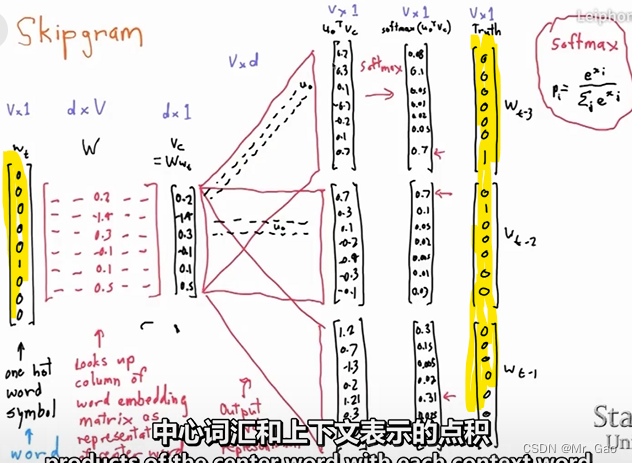 Leiphon
Skipgram
V×1
w_t
0
0
0
0
0
1
0
0
0
one hot
word
symbol
word
d×V
W
- - 0.2 - -
- - -1.4 - -
- - 0.3 - -
- - -0.1 - -
- - 0.1 - -
- - 0.5 - -
Looks up
column of
word embedding
matrix as
d×1
V_c
= Ww_t
0.2
-1.4
0.3
-0.1
0.1
0.5
V×d
u_o
u_o
Output
V×1
u_o^T V_c
0.1
-0.2
0.1
0.7
0.7
0.3
0.1
-0.2
-0.3
-0.1
1.2
0.7
-1.3
0.2
1.21
softmax
V×1
softmax(u_o^T V_c)
0.1
0.05
0.01
0.02
0.05
0.7
0.7
0.1
0.05
0.02
0.05
0.01
0.03
0.3
0.15
0.31
V×1
Truth
0
0
0
0
0
0
1
w_t-3
0
1
0
0
0
0
0
w_t-2
0
0
0
0
w_t-1
softmax
p_i = e^x_i / Σ_j e^x_j
Sta
Un
中心词汇和上下文表示的点积
products of the center word with each context word
CSDN @Mr_Gao_